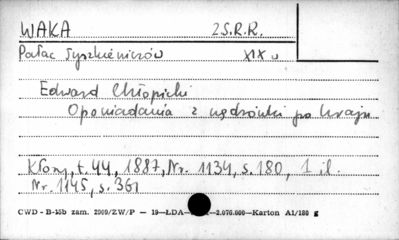 WAKA ZSRR.
Pałac Tyszkiewiczów XIX w
Edward Chłopicki
Opowiadania z wędrówki po kraju
Kłosy, t. 44, 1887, Nr. 1134, s. 180, 1 il.
Nr. 1145, s. 361
CWD - B-15b zam. 2909/ZW/P — 19—ŁDA— —2.070.000—Karton A1/180 g